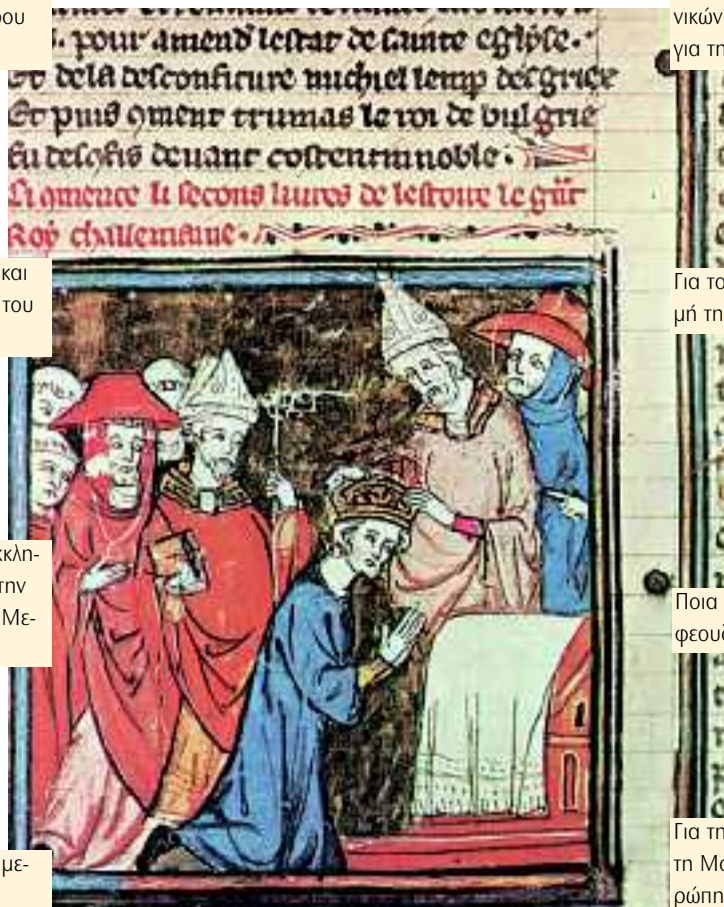 ου
. pour amend lestat de sainte eglyse.
Et de la desconfiture michiel lemp de grice
Et puis qment trumas le roi de bulgrie
fu descofis deuant costentinnoble.
Ci qmence li secons liures de lestoire le gnt
Roy challemaine.
και
του
κκλη-
την
Με-
με-
νικών
για τη
Για το
μή τη
Ποια
φεουδ
Για τη
τη Μα
ρώπη